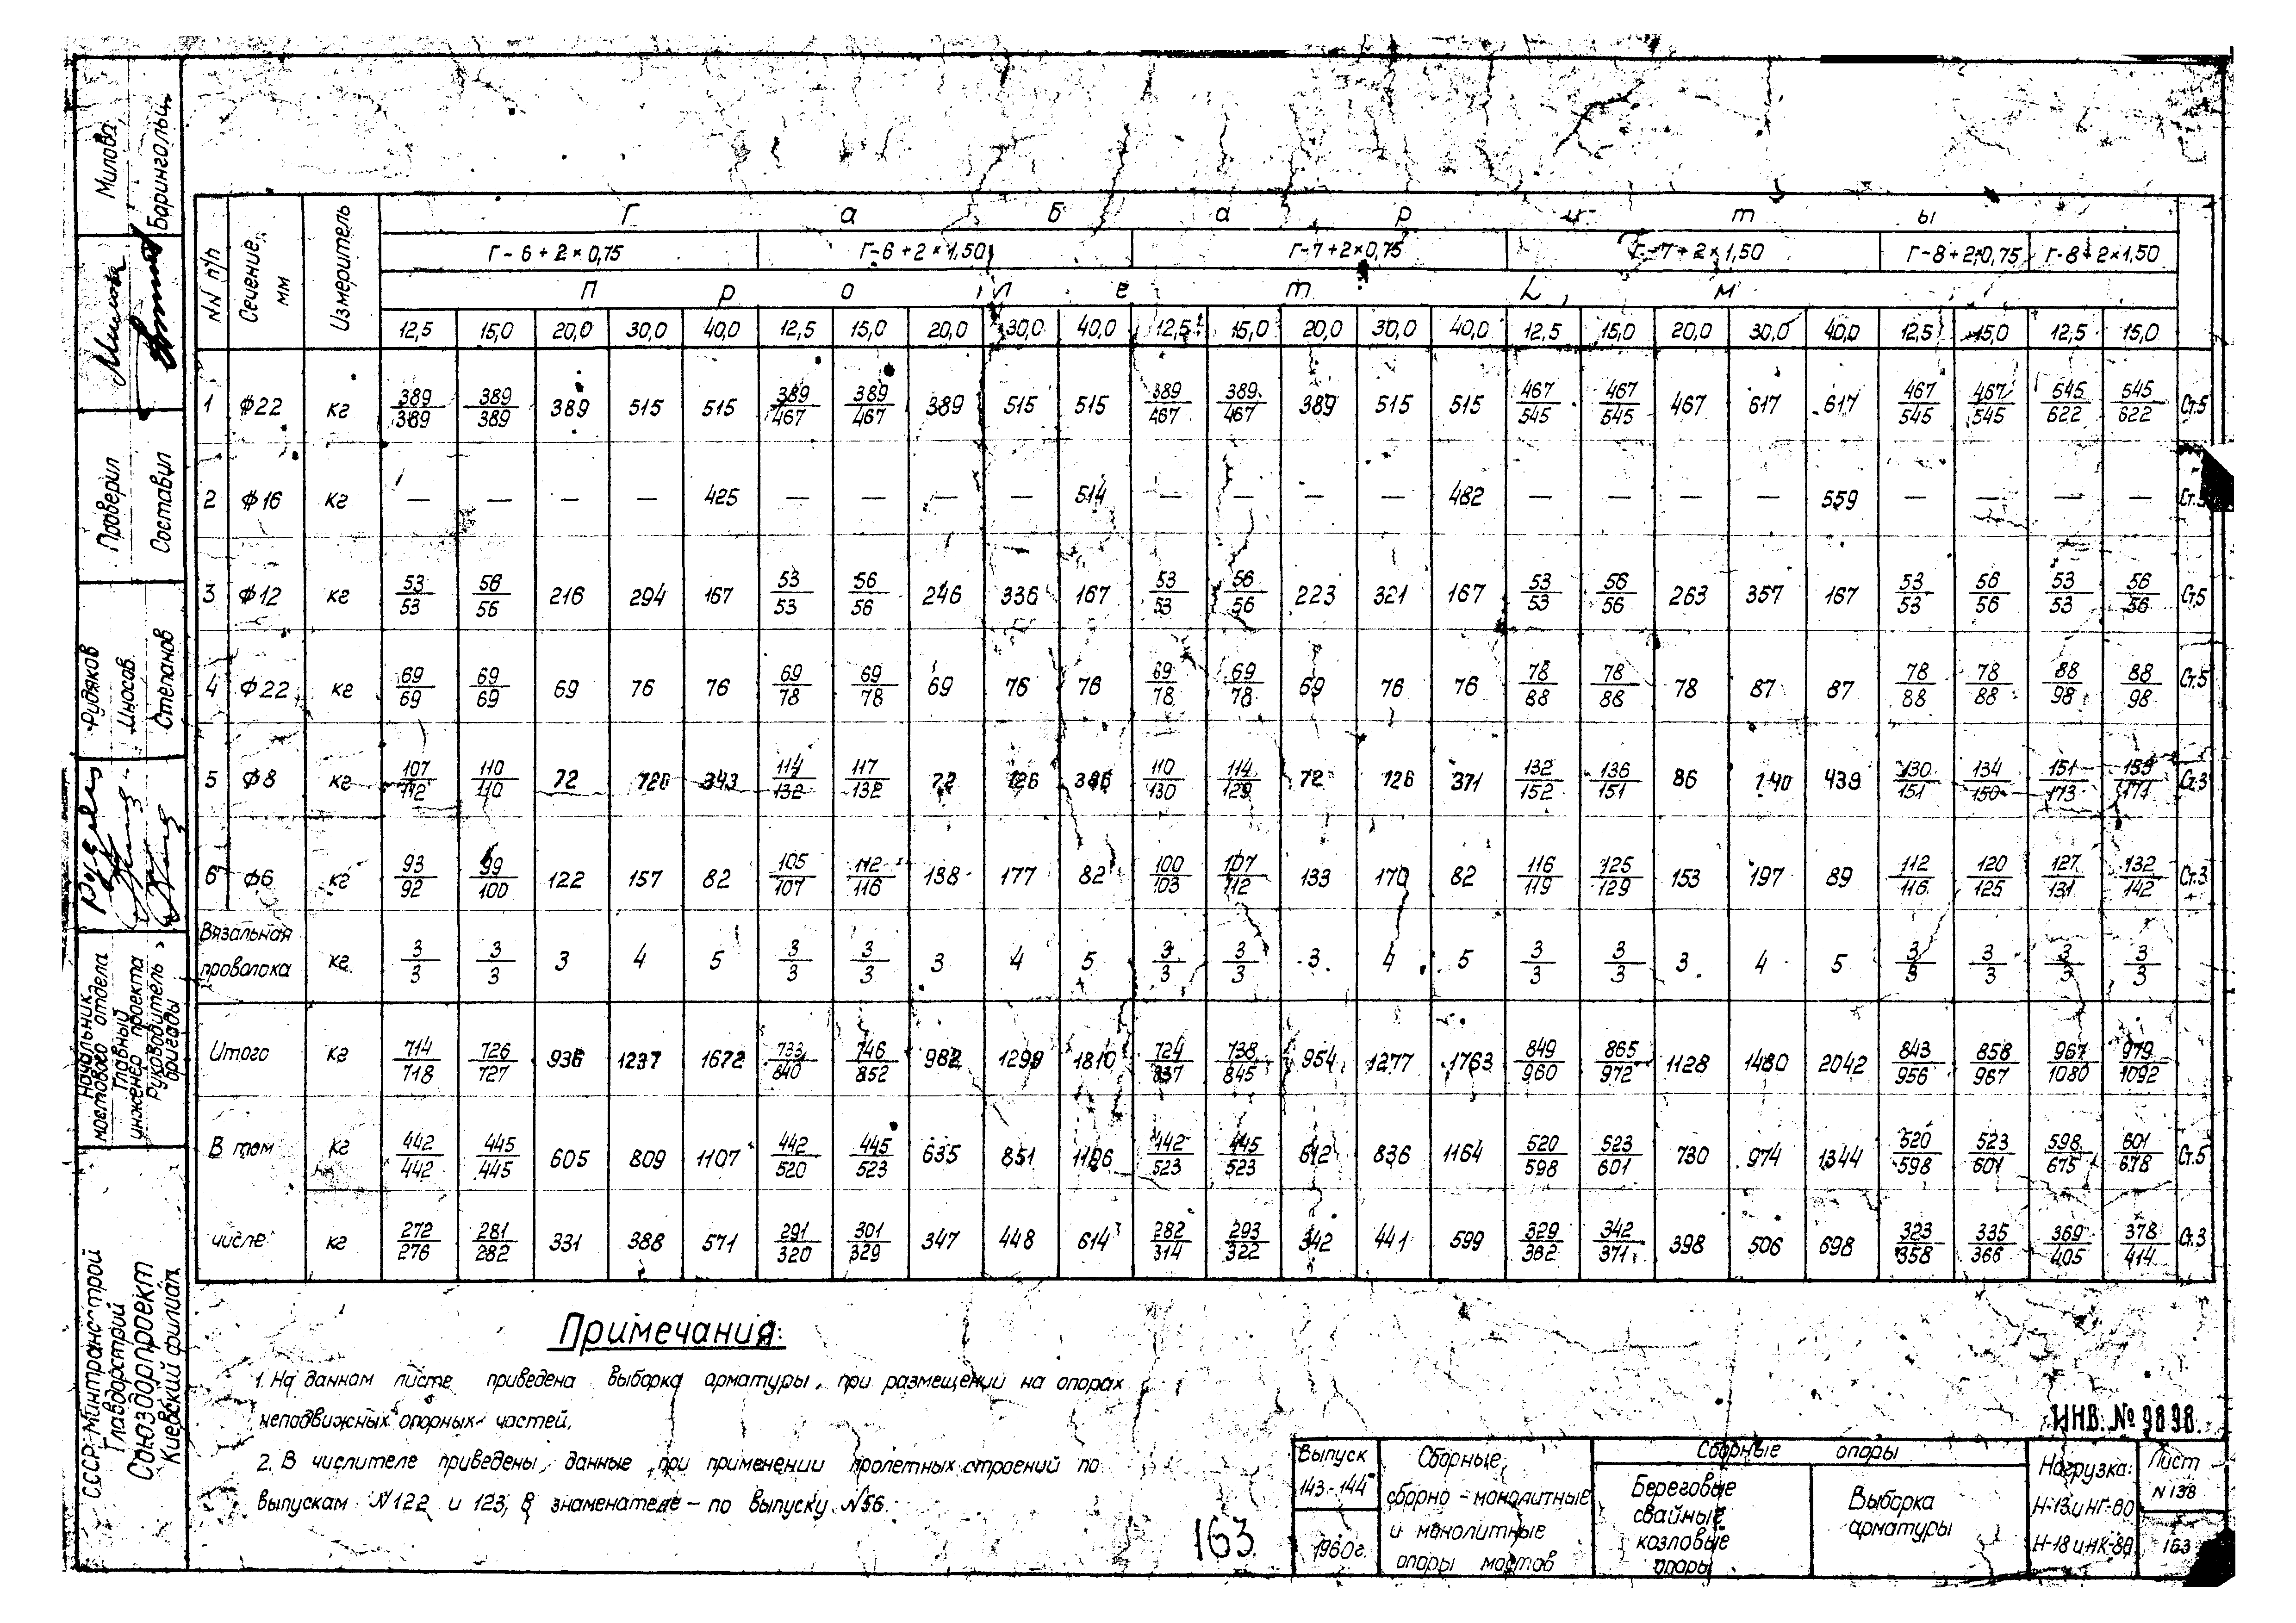 Г а б а р и т ы
NN п/п Сечение мм Измеритель Г-6+2×0,75 Г-6+2×1,50 Г-7+2×0,75 Г-7+2×1,50 Г-8+2×0,75 Г-8+2×1,50
П р о л е т L, м
12,5 15,0 20,0 30,0 40,0 12,5 15,0 20,0 30,0 40,0 12,5 15,0 20,0 30,0 40,0 12,5 15,0 20,0 30,0 40,0 12,5 15,0 12,5 15,0
1 ф22 кг 389/389 389/389 389 515 515 389/467 389/467 389 515 515 389/467 389/467 389 515 515 467/545 467/545 467 617 617 467/545 467/545 545/622 545/622 Ст.5
2 ф16 кг — — — — 425 — — — — 514 — — — — 482 — — — — 559 — — — — Ст.5
3 ф12 кг 53/53 56/56 216 294 167 53/53 56/56 246 336 167 53/53 56/56 223 321 167 53/53 56/56 263 357 167 53/53 56/56 53/53 56/56 Ст.5
4 ф22 кг 69/69 69/69 69 76 76 69/78 69/78 69 76 76 69/78 69/78 69 76 76 78/88 78/88 78 87 87 78/88 78/88 88/98 88/98 Ст.5
5 ф8 кг 107/112 110/110 72 126 343 114/132 117/132 72 126 386 110/130 114/129 72 126 371 132/152 136/151 86 140 439 130/151 134/150 151/173 153/171 Ст.3
6 ф6 кг 93/92 99/100 122 157 82 105/107 112/116 138 177 82 100/103 107/112 133 170 82 116/119 125/129 153 197 89 112/116 120/125 127/131 132/142 Ст.3
Вязальная проволока кг 3/3 3/3 3 4 5 3/3 3/3 3 4 5 3/3 3/3 3 4 5 3/3 3/3 3 4 5 3/3 3/3 3/3 3/3
Итого кг 714/718 726/727 936 1237 1672 733/840 746/852 982 1299 1810 724/837 738/845 954 1277 1763 849/960 865/972 1128 1480 2042 843/956 858/967 967/1080 979/1092
В том кг 442/442 445/445 605 809 1107 442/520 445/523 635 851 1196 442/523 445/523 612 836 1164 520/598 523/601 730 974 1344 520/598 523/601 598/675 601/678 Ст.5
числе кг 272/276 281/282 331 388 571 291/320 301/329 347 448 614 282/314 293/322 342 441 599 329/362 342/371 398 506 698 323/358 335/366 369/405 378/414 Ст.3
Примечания:
1. На данном листе приведена выборка арматуры, при размещении на опорах
неподвижных опорных частей.
2. В числителе приведены данные при применении пролетных строений по
выпускам N122 и 123, в знаменателе – по выпуску N56.
163
ИНВ. № 9898
Выпуск
143-144
1960г.
Сборные,
сборно-монолитные
и монолитные
опоры мостов
Сборные опоры
Береговые
свайные
козловые
опоры
Выборка
арматуры
Нагрузка:
Н-13 и НГ-60
Н-18 и НК-80
Лист
N 138
163
Милова
Барингольц
Проверил
Составил
Рудяков
Иносов
Степанов
Начальник
мостового отдела
Главный
инженер проекта
Руководитель
бригады
СССР Минтрансстрой
Главдорстрой
Союздорпроект
Киевский филиал